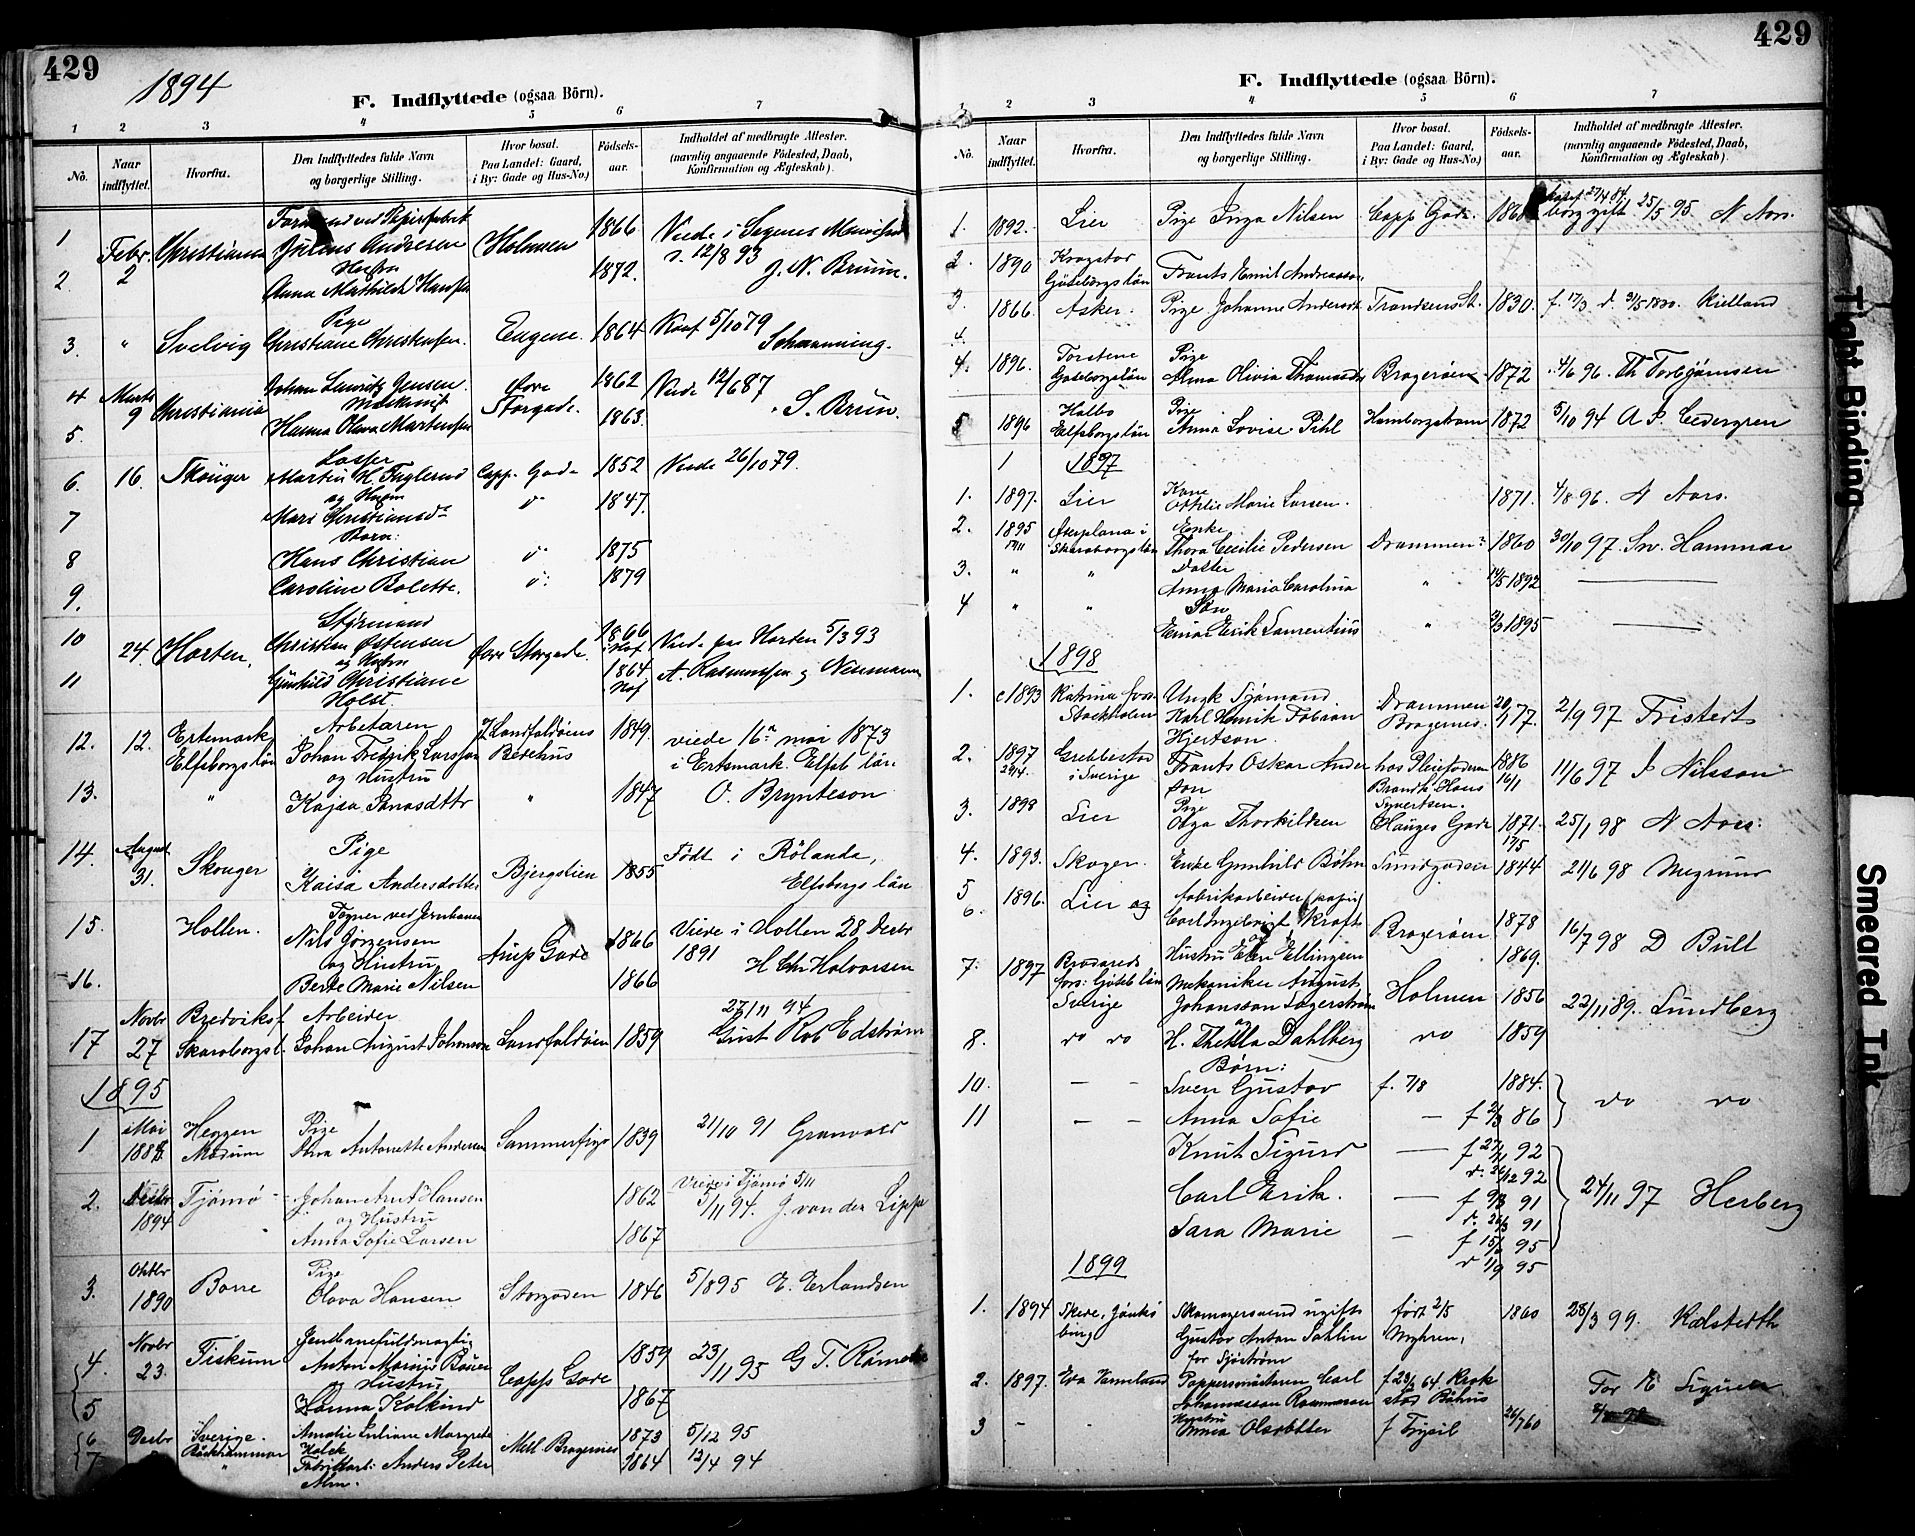 429
1894
F. Indflyttede (ogsaa Börn).
1 2 3 4 5 6 7
No.
Naar indflyttet.
Hvorfra.
Den Indflyttedes fulde Navn og borgerlige Stilling.
Hvor bosat. Paa Landet: Gaard, i By: Gade og Hus-No.)
Födsels-aar.
Indholdet af medbragte Attester. (navnlig angaaende Födested, Daab, Konfirmation og Ægteskab).
1 Febr. 2 Christiania
Julius Andresen Holmen 1866 Viede i
12/8 93
2 Hustru
Anna Mathilde Hansen 1872. J. N. Bruun.
Pige
3. " Svelvig Christiane Christensen. Eugene. 1864 Konf 5/10 79
Schanning.
4 Marts 9 Christiania Johan Jensen. Øvre Storgade. 1862 Viede 12/6 87
5. Hanna Olava Martensen 1863. S. Brun.
6. 16. Skouger Martin H. Fuglerud Capp. Gade 1852 Viede 26/10 79.
og Hustru
7 1847.
Børn:
8 Hans Christian 1875
9. Caroline Bolette. 1879
Styrmand
10 24. Horten. Christian Østensen Øvre Storgade. 1866 Viede paa Horten 5/3 93
og Hustru
11 Gunhild Christiane 1864 A. Rasmussen g Neumann
Holst.
Arbetaren
12. 12. Ertemark Elfsborgslän Johan Fredrik Larsson 1849. viede 16 mai 1873
og Hustru i Ertsmark. Elfsb län
13. " Kajsa Jonasdttr " 1847 O. Brynteson
14. August 31. Skouger Pige
Kaisa Andersdotter Bjergstien 1855 Født i Rölanda, Elfsborgs län
15. Hollen.
Nils Jörgensen Arups Gade 1866 Viede i Hollen 28 Decbr 1891
og Hustru
16. Berte Marie Nilsen 1866 H Chr Halvorsen
17 Novbr 27 Bredviksf Skaraborgsl. Arbeider
Johan August Johanson Landfaldöien 1859 27/11 94 Gust Rob Edström
1895
1 Mai Heggen Modum Pige
Antonette Andersen 1839 21/10 91 Granvold
2. Decbr 1894 Tjömö Johan Hansen 1862 Viede i Tjömö 5/11
og Hustru 5/11 94. J. von der Lippe
Anna Sofie Larsen 1867
3. Oktbr 1890 Borre Pige
Olava Hansen Storgaden 1846 5/8 95 E. Erlandsen
4. Novbr 23. Fiskum
Anton Marius 1859 23/11 95
og Hustru Capps Gade
5 Hanna Kolkind 1867
6 Decbr Sverige. Bäckhammar Amalie Juliane Margrete Mell Bragernes 1873 5/12 95
7 " Anders Peter 1864 12/4 94
Alm.
429
F. Indflyttede (ogsaa Börn).
1 2 3 4 5 6 7
No.
Naar indflyttet.
Hvorfra.
Den Indflyttedes fulde Navn og borgerlige Stilling.
Hvor bosat. Paa Landet: Gaard, i By: Gade og Hus-No.)
Födsels-aar.
Indholdet af medbragte Attester. (navnlig angaaende Födested, Daab, Konfirmation og Ægteskab).
1. 1892. Lier Pige Inga Nilsen Capp Gade. 25/5 95. N Aars.
2. 1890 Krogstad Göteborgslän Frants Emil Andreasson
3. 1866. Asker. Pige Johanne Andersdt Trondsens St. 1830. f. 17/3 d. 31/5 1830. Kielland
4.
4. 1896. Torstene Goteborgslän Pige
Alma Olivia Thomasdtr Bragerøen 1872 4/6 96. Th Torbjörnsen
5 1896 Halbo Elfsborgslän Pige
Anna Lovise Pihl Hamborgstrøm 1872 5/10 94 A P. Cedergren
1 1897
1. 1897. Lier Kone
Othilie Marie Larsen. 1871. 4/8 96. N Aars.
2. 1895 Österplana i Skaraborgslän Enke
Thora Cecilie Pedersen Drammen 1860 30/10 97. Sv. Hammar
3. " " Datter
Anna Maria Carolina " 1892
4 " " Søn
Einar Erik Laurentius " 1895
1898
1. 1893 Katrina fors. Stockholm Ungk Sjömand
Karl Henrik Fabian Drammen Bragernes. 20/1 77. 2/9 97 Fristedt
Hjertson
2. 1897 Grebbestad i Sverige Frants Oskar Anderson hos Pleiefaderen 1886 16/1 11/6 97 J Nilsson
Brandk. Hans Syvertsen.
3. 1898 Lier Pige
Olga Thorkildsen Hauges Gade 1871. 25/1 98 N Aars.
4. 1893. Skoger. Enke Gunhild Bøhn Sundgaden 1844 21/6 98 Magnus
5 1896. Lier og Fabrikarbeider (papir)
6. Carl Ingebrigt Kraft Bragerøen 1878 16/7 98 D Bull
Hustru Ellen Ellingsen 1869.
7. 1897 Brodareds fors: Göteb län Sverige Mekaniker August
Johansson Lagerström Holmen 1856 22/11 89. Lundberg
8. do do H. Thekla Dahlberg do 1859
Børn:
10. — — Sven Gustav f. 7/8 1884. do do
11 — — Anna Sofie — f 2/3 86
Knut Sigurd — f 27/11 92
d. 26/12 92
Carl Erik. — f 9/3 91 24/11 97 Herberg
d. 26/3 91
Sara Marie — f 15/6 95
d 1/9 95
1899
1. 1894 Skede, Jönköbing Skomagersvend ugift født 2/5 1860 28/3 99. Kalstedth
Gustav Anton Sahlin
for Sjöström
2. 1897. Eda Vermland Carl f 23/6 64.
Johannesson
3 - - Hustru
Olsdotter f Trysil 26/7 60
Tight Binding
Smeared Ink